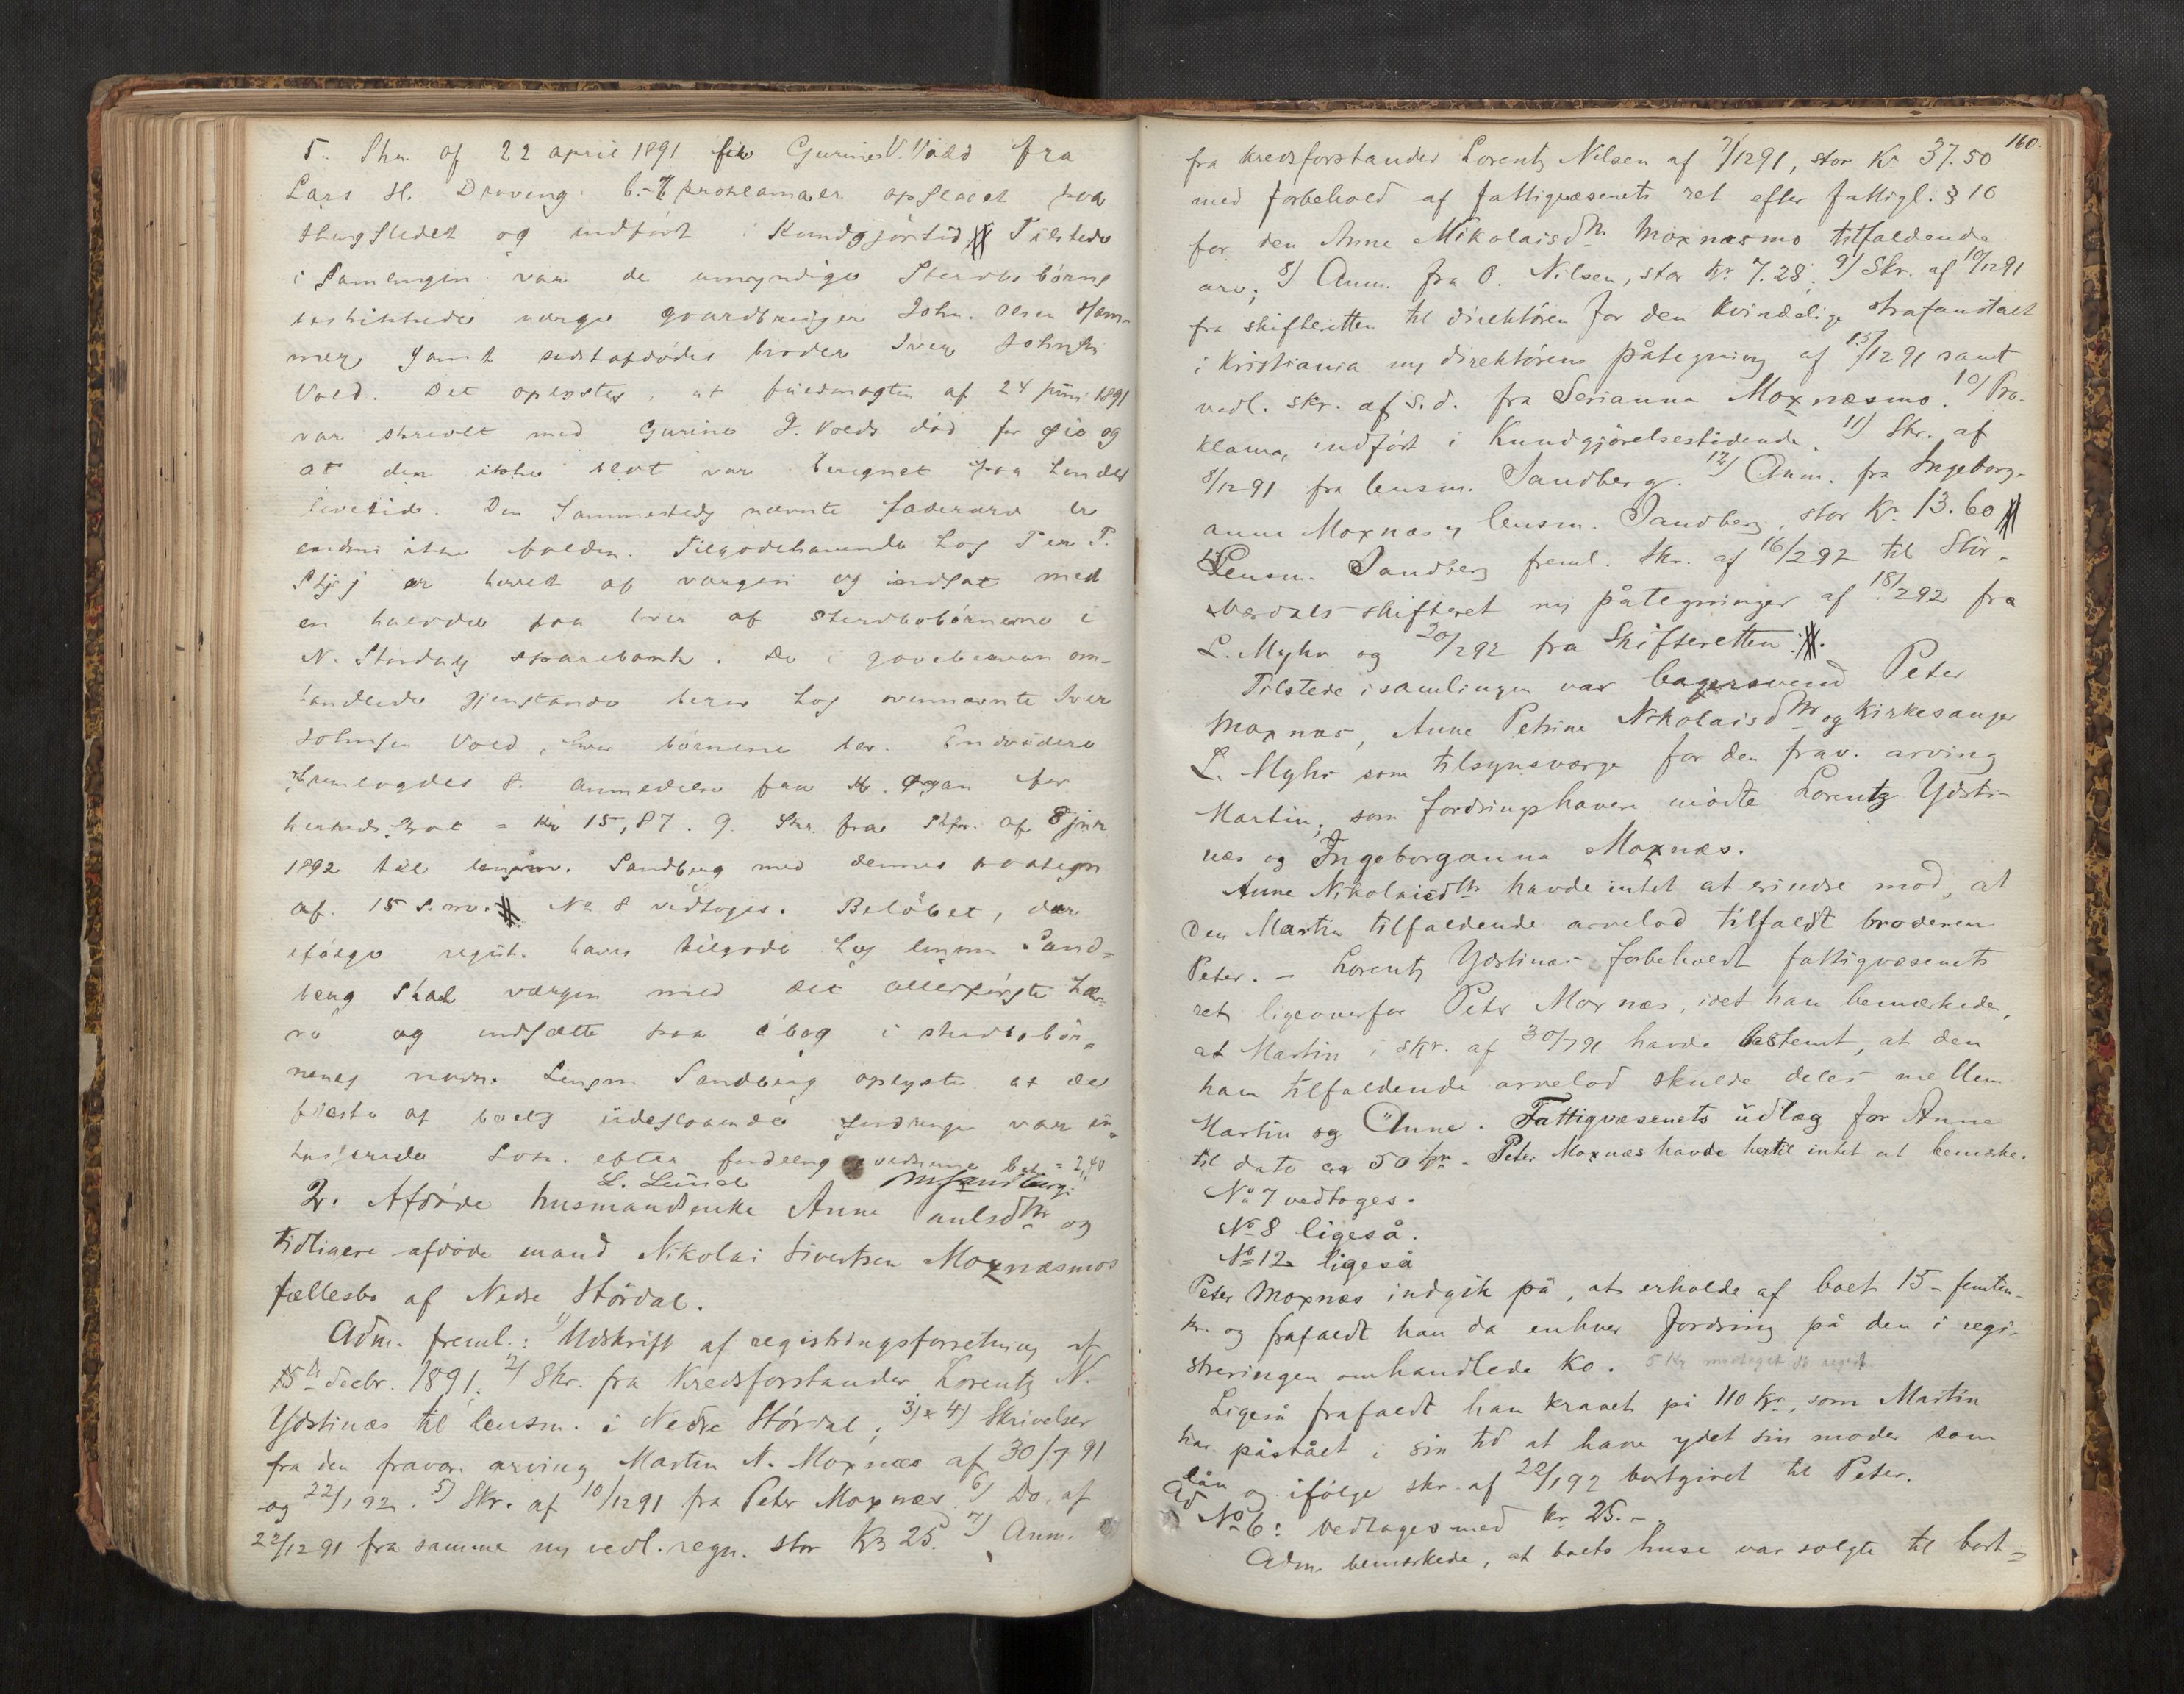 5. Skr. af 22 april 1891 til Gurine V. Vold fra
Lars H. Draveng. 6.-7 proklamaer opslaaet paa
thingstedet og indført i Kundgjørtid # Tilstede
i Samlingen var de umyndige Sterbobørns
beskikkede værge gaardbruger John Olsen Ham-
mer samt sidstafdødes broder Iver Johnsen
Vold. Det oplystes, at fuldmagten af 24 juni 1891
var skrevet med Gurine J. Volds død for øie og
at den ikke blot var beregnet paa hendes
levetid. Den sammesteds nævnte fadererv er
endnu ikke falden. Tilgodehavende hos P er P.
Skjej er hævet af værgen og indsat med
en halvdel paa hver af sterbobørnene i
N. Stjørdals sparebank. De i gavebrevet om-
handlede gjenstande beror hos ovennævnte Iver
Johnsen Vold, hvor børnene er. Endvidere
fremlagdes 8. anmeldelse fra M. Øyan for
herredsskat = Kr 15,87. 9. Skr. fra Skfr. af 8 jan
1892 til lensm. Sandberg med dennes paategn
af 15 s.m. # No 8 vedtoges. Beløbet, der
ifølge regist. haves tilgode hos lensm Sand-
berg skal værgen med det allerførste hæ-
ve og indsætte paa bog i sterbobør-
nenes navn. Lensm Sandberg oplyste at det
meste af boets udestaaende fordringer var in-
kasserede. Lom. efter fordeling vedkom. bet = 2,40
L. Lund MSandberg.
2. Afdøde husmandsenke Anne Paulsdtr og
tidligere afdøde mand Nikolai Sivertsen Moxnæsmos
fællesbo af Nedre Stördal.
Adm. freml.: 1) Udskrift af registringsforretning af
15de decbr. 1891. 2) Skr. fra Kredsforstander Lorentz N.
Ydstinæs til lensm. i Nedre Stördal; 3) & 4) Skrivelser
fra den fravær. arving Martin N. Moxnæs af 30/7 91
og 22/1 92. 5) Skr. af 10/12 91 fra Peter Moxnæs. 6) Do. af
22/12 91 fra samme m/ vedl. regn. stor Kr 25. 7) Anm.
160.
fra kredsforstander Lorentz Nilsen af 7/12 91, stor Kr. 37.50
med forbehold af fattigvæsenets ret efter fattigl. § 10
for den Anne Nikolaisdtr Moxnæsmo tilfaldende
arv; 8) Anm. fra O. Nilsen, stor kr. 7.28; 9) Skr. af 10/12 91
fra skifteretten til direktören for den kvindelige strafanstalt
i Kristiania m/ direktörens påtegning af 15/12 91 samt
vedl. skr. af s.d. fra Serianna Moxnæsmo. 10) Pro-
klama, indført i Kundgjörelsestidende. 11) Skr. af
8/12 91 fra lensm. Sandberg. 12) Anm. fra Ingeborg-
anna Moxnæs v/ lensm. Sandberg, stor Kr. 13.60 #
Lensm. Sandberg freml. skr. af 16/2 92 til Stör-
Værdals skifteret m/ påtegninger af 18/2 92 fra
L. Myhr og 20/2 92 fra Skifteretten #.
Tilstede i samlingen var bagersvend Peter
Moxnæs, Anne Petrine Nikolaisdtr og Kirkesanger
L. Myhr som tilsynsværge for den frav. arving
Martin; som fordringshavere mödte Lorentz Ydsti-
næs og Ingeborganna Moxnæs.
Anne Nikolaisdtr havde intet at erindre mod, at
den Martin tilfaldende arvelod tilfaldt broderen
Peter. – Lorentz Ydstinæs forbeholdt fattigvæsenets
ret ligeoverfor Peter Moxnæs, idet han bemærkede,
at Martin i skr. af 30/7 91 havde bestemt, at den
ham tilfaldende arvelod skulde deles mellem
Martin og Anne. Fattigvæsenets udlæg for Anne
til dato ca 50 kr. – Peter Moxnæs havde hertil intet at bemærke.
No 7 vedtoges.
No 8 ligeså.
No 12 ligeså
Peter Moxnæs indgik på, at erholde af boet 15 – femten –
kr. og frafaldt han da enhver fordring på den i regi-
streringen omhandlede Ko. 5 Kr modtaget
Ligeså frafaldt han kravet på 110 kr., som Martin
har påstået i sin tid at have ydet sin moder som
lån og ifølge skr. af 22/1 92 bortgivet til Peter.
Ad No 6: Vedtoges med kr. 25. –
Adm. bemærkede, at boets huse var solgte til bort-